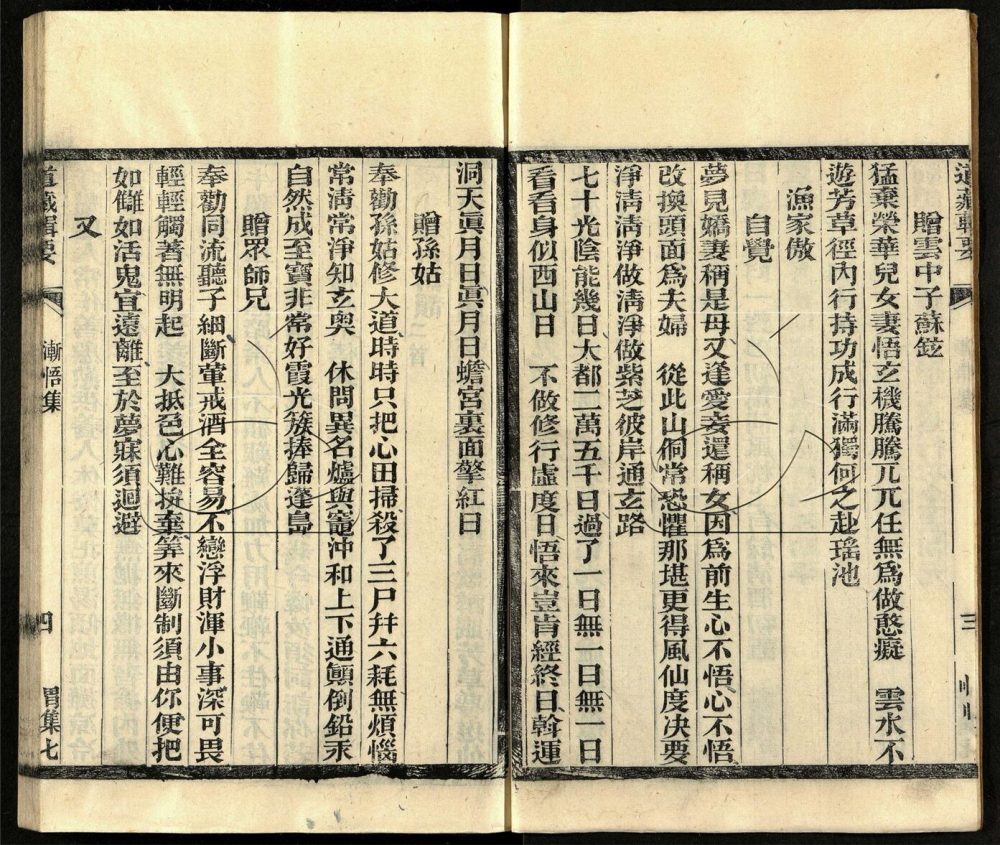 道藏輯要
贈雲中子蘇鉉
猛棄榮華兒女妻悟玄機騰騰兀兀任無爲做憨癡　雲水不
遊芳草徑內行持功成行滿獨何之赴瑤池
漁家傲
自覺
夢見嬌妻稱是母又逢愛妾還稱女因爲前生心不悟心不悟
改換頭面爲夫婦　從此山侗常恐懼那堪更得風仙度决要
淨淸淸淨做淸淨做紫芝彼岸通玄路
七十光陰能幾日大都二萬五千日過了一日無一日無一日
看看身似西山日　不做修行虛度日悟來豈肯經終日斡運
三
洞天眞月日眞月日蟾宮裏面擎紅日
贈孫姑
奉勸孫姑修大道時時只把心田掃殺了三尸幷六耗無煩惱
常淸常淨知玄奧　休問異名爐與竈沖和上下通顚倒鉛汞
自然成至寶非常好霞光簇捧歸蓬島
贈眾師兄
奉勸同流聽子細斷葷戒酒全容易不戀浮財渾小事深可畏
輕輕觸著無明起　大抵色心難拚棄筭來斷制須由你便把
如讎如活鬼宜遠離至於夢寐須迴避
又
道藏輯要
漸悟集
四
胃集七